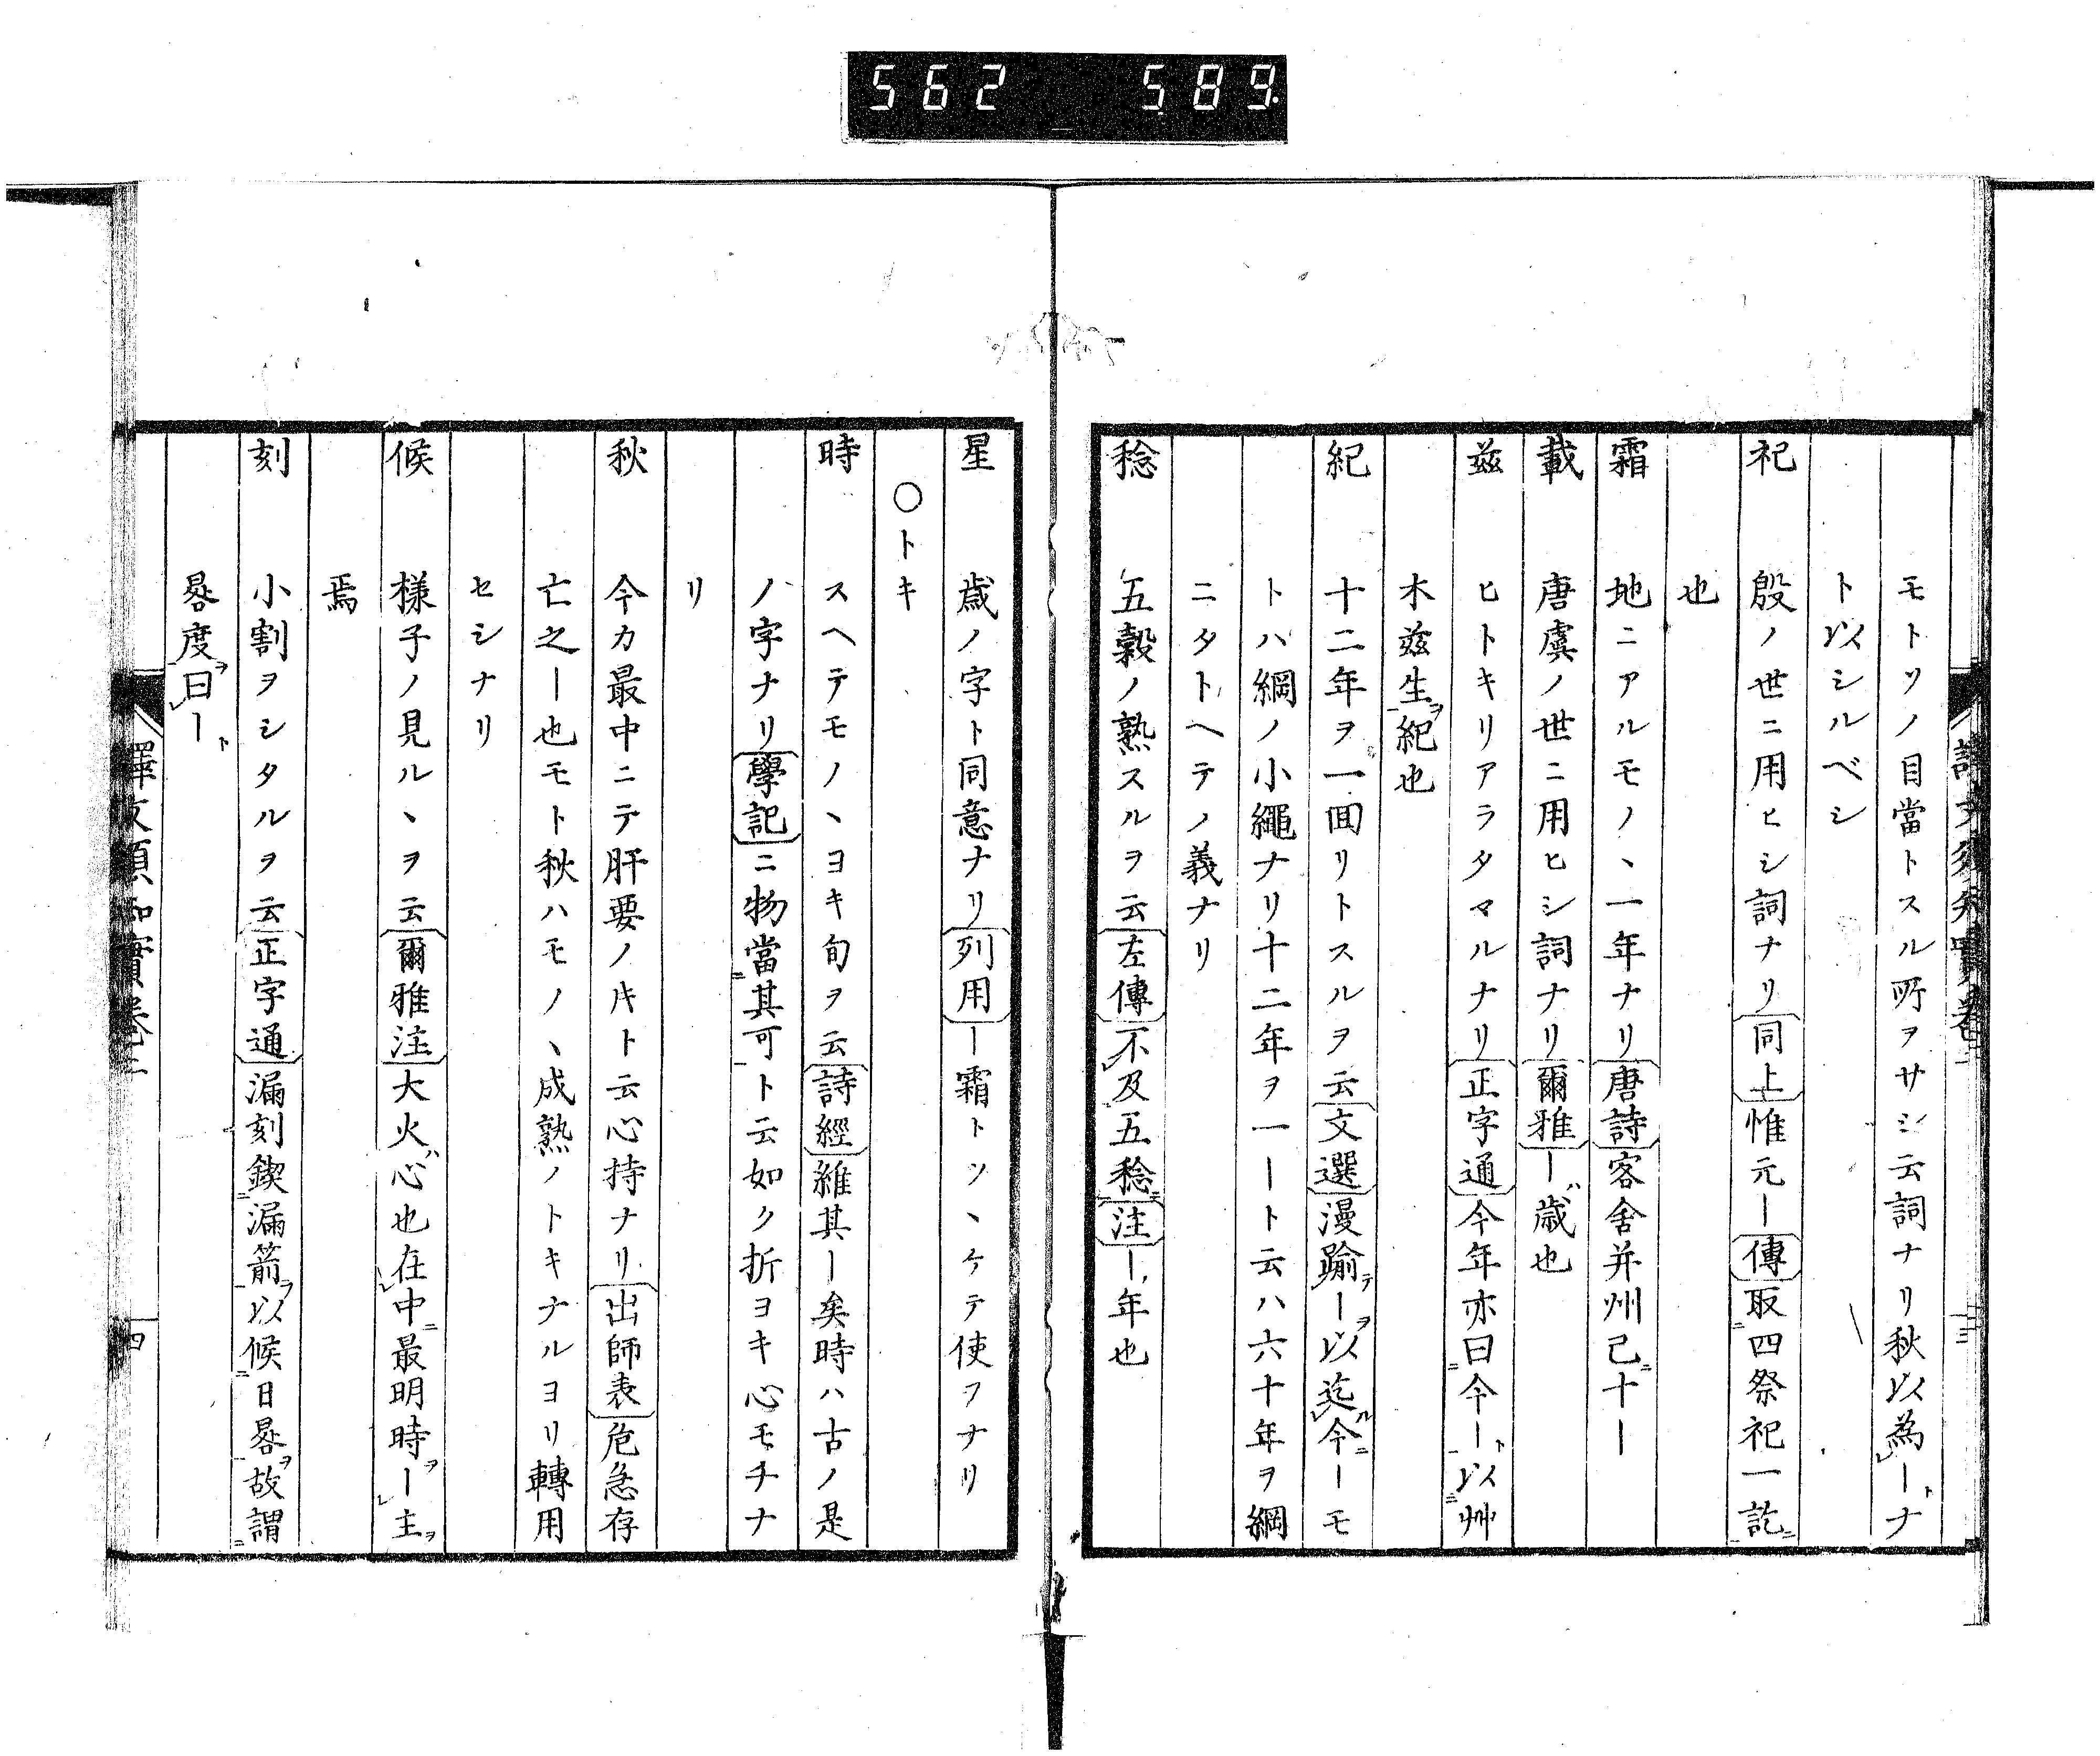 562 589.
モトツノ目當トスル所ヲサシ云詞ナリ秋以為ーナ
ト以シルベシ
祀 殷ノ世ニ用ヒシ詞ナリ同上惟元ー傳取四祭祀一訖
也
霜 地ニアルモノヽ一年ナリ唐詩客舍并州已十ー
載 唐虞ノ世ニ用ヒシ詞ナリ爾雅ー歳也
茲 ヒトキリアラタマルナリ正字通今年亦曰今ー以艸
木茲生紀也
紀 十二年ヲ一囬リトスルヲ云文選漫踰ー以迄今ーモ
トハ綱ノ小繩ナリ十二年ヲ一ート云ハ六十年ヲ綱
ニタトヘテノ義ナリ
稔 五穀ノ熟スルヲ云左傳不及五稔注ー年也
星 歳ノ字ト同意ナリ列用ー霜トツヽケテ使フナリ
○トキ
時 スヘテモノヽヨキ旬ヲ云詩經維其ー矣時ハ古ノ是
ノ字ナリ學記ニ物當其可ト云如ク折ヨキ心モチナ
リ
秋 今カ最中ニテ肝要ノ𪜈ト云心持ナリ出師表危急存
亡之ー也モト秋ハモノヽ成熟ノトキナルヨリ轉用
セシナリ
候 様子ノ見ルヽヲ云爾雅注大火心也在中最明時ー主
焉
刻 小割ヲシタルヲ云正字通漏刻鍥漏箭以候日晷故謂
晷度曰ー
譯文須知實卷二
四